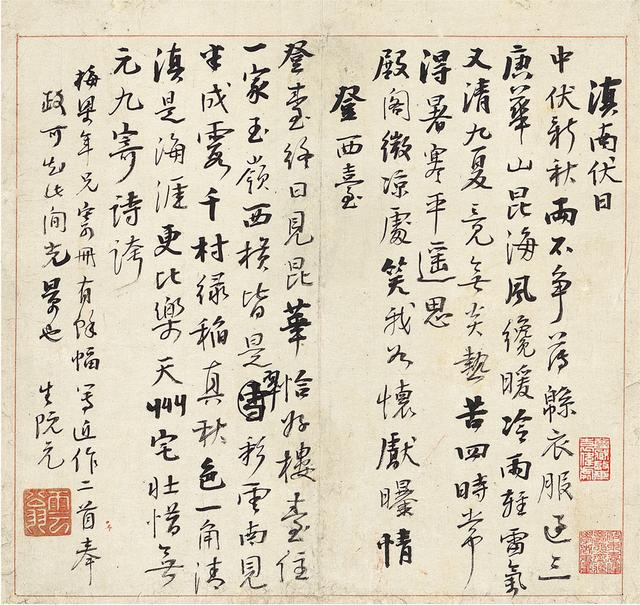 滇南伏日
中伏新秋兩不争薄緜衣服過三
庚華山昆海風纔暖冷雨輕雷氣
又清九夏竟無炎熱苦四時常
得暑寒平遥思
殿閣微凉處笑我如懷獻曝情
登西臺
登臺終日見昆華恰好樓臺住
一家玉嶺西横皆是雪彩雲南見
半成霞千村緑稲真秋色一角清
滇是海涯更比樂天州宅壯惜無
元九寄詩誇
梅梁年兄寄册有餘幅寫近作二首奉
政可知此間光景也 生阮元